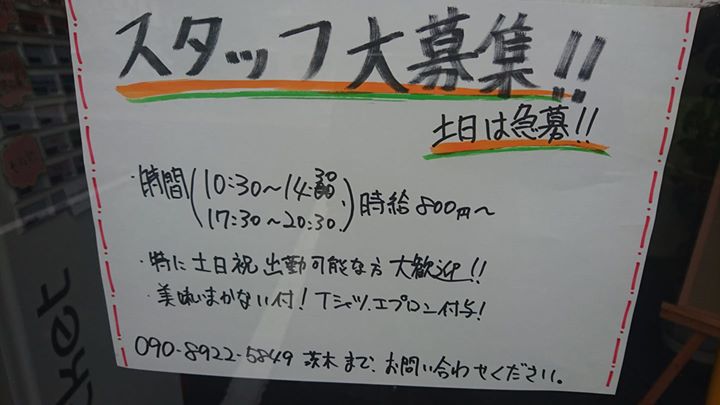 スタッフ大募集!!
土日は急募!!
・時間(10:30～14:30.
17:30～20:30.)時給800円～
・特に土日祝出勤可能な方大歓迎!!
・美味いまかない付!Tシャツ.エプロン付与!
090-8922-5849 茨木まで、お問い合わせください。